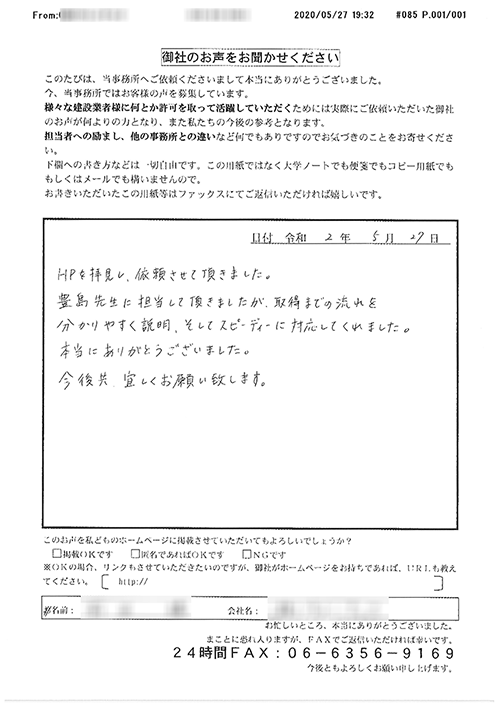 From:
2020/05/27 19:32
#085 P.001/001
御社のお声をお聞かせください
このたびは、当事務所へご依頼くださいまして本当にありがとうございました。
今、当事務所ではお客様の声を募集しています。
様々な建設業者様に何とか許可を取って活躍していただくためには実際にご依頼いただいた御社
のお声が何よりの力となり、また私たちの今後の参考となります。
担当者への励まし、他の事務所との違いなど何でもありですのでお気づきのことをお寄せくださ
い。
下欄への書き方などは一切自由です。この用紙ではなく大学ノートでも便箋でもコピー用紙でも
もしくはメールでも構いませんので。
お書きいただいたこの用紙等はファックスにてご返信いただければ嬉しいです。
日付 令和 2 年 5 月 27 日
HPを拝見し、依頼させて頂きました。
豊島先生に担当して頂きましたが、取得までの流れを
分かりやすく説明、そしてスピーディーに対応してくれました。
本当にありがとうございました。
今後共、宜しくお願い致します。
このお声を私どものホームページに掲載させていただいてもよろしいでしょうか?
□掲載OKです □匿名であればOKです □NGです
※OKの場合、リンクもさせていただきたいのですが、御社がホームページをお持ちであれば、URLも教え
てください。 [ http:// ]
お名前: 会社名:
お忙しいところ、本当にありがとうございました。
まことに恐れ入りますが、FAXでご返信いただければ幸いです。
24時間FAX:06-6356-9169
今後ともよろしくお願い申し上げます。